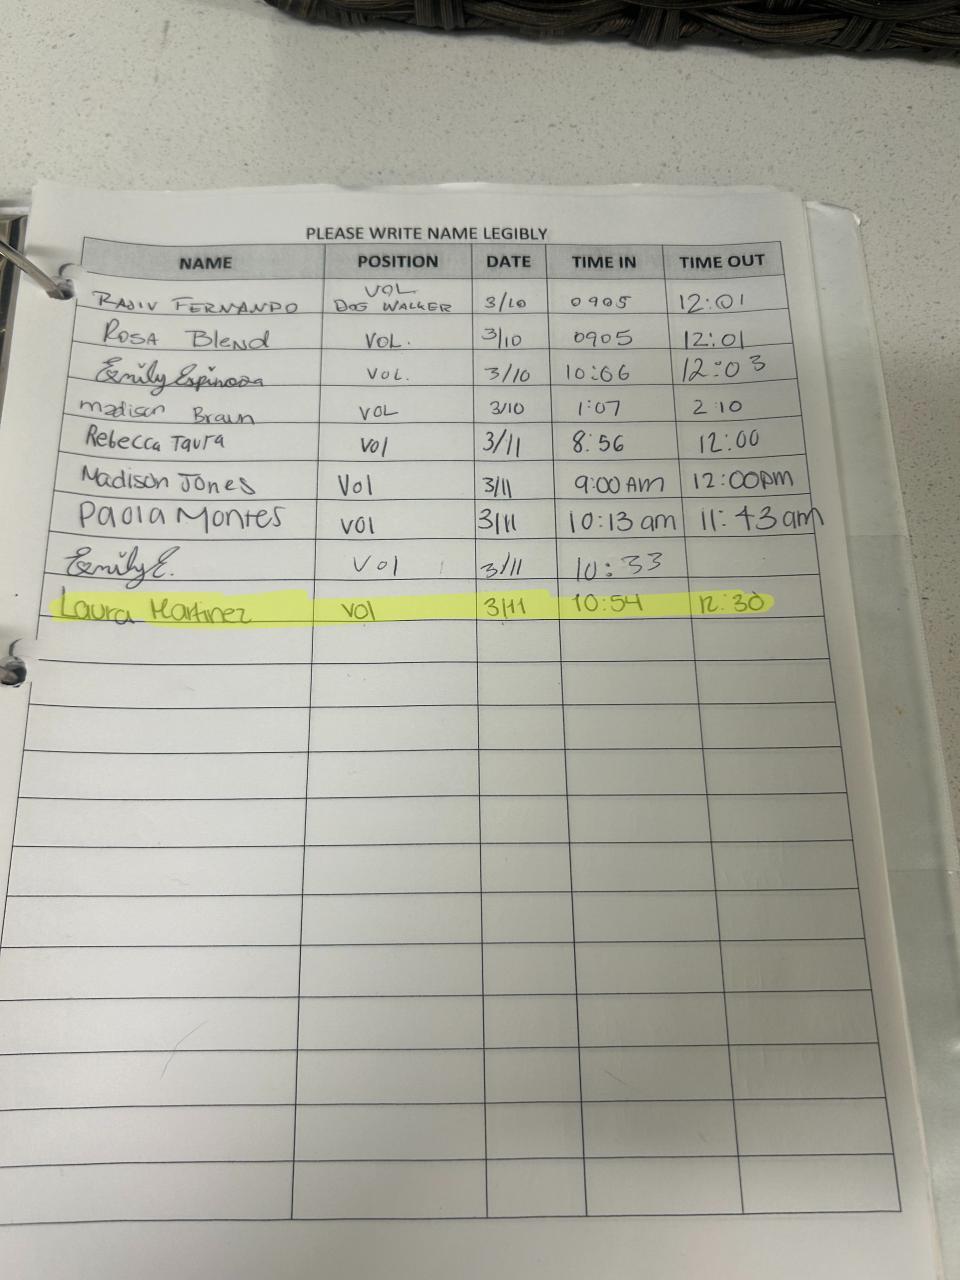 PLEASE WRITE NAME LEGIBLY
NAME POSITION DATE TIME IN TIME OUT
RAJIV FERNANDO VOL DOG WALKER 3/10 0905 12:01
ROSA Blend VOL. 3/10 0905 12:01
Emily Espinoza VOL. 3/10 10:06 12:03
madison Braun VOL 3/10 1:07 2:10
Rebecca Taura Vol 3/11 8:56 12:00
Madison Jones Vol 3/11 9:00 AM 12:00pm
Paola Montes VOl 3/11 10:13 am 11:43 am
Emily E. Vol 3/11 10:33
Laura Martinez Vol 3/11 10:54 12:30